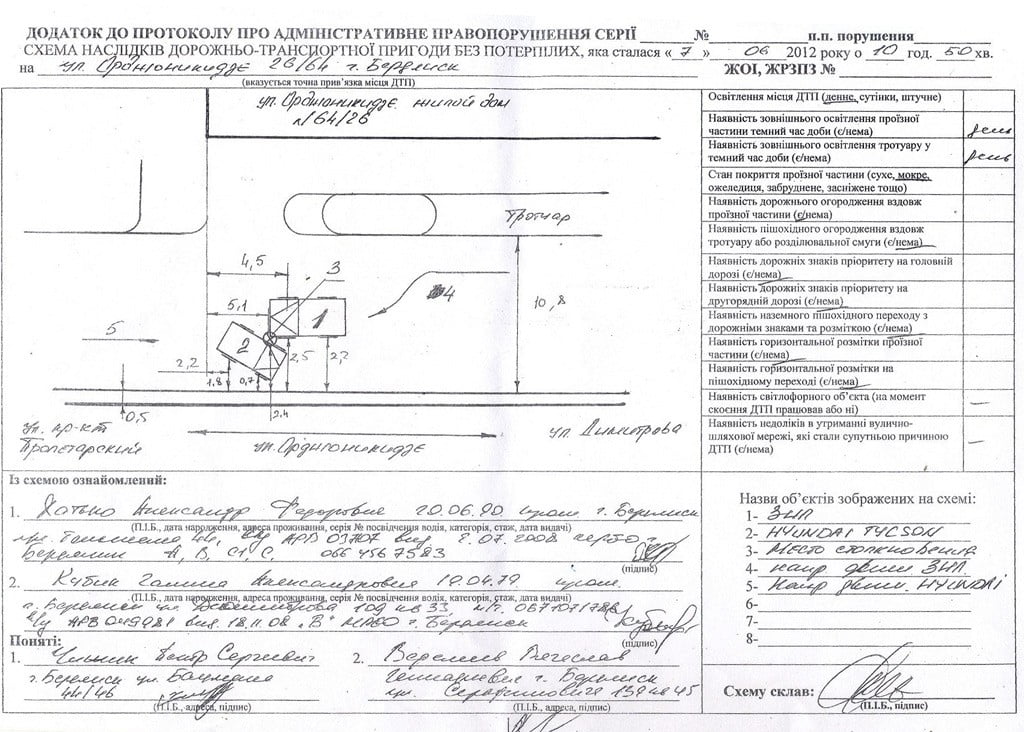 ДОДАТОК ДО ПРОТОКОЛУ ПРО АДМІНІСТРАТИВНЕ ПРАВОПОРУШЕННЯ СЕРІЇ ______ №______________ п.п. порушення________
СХЕМА НАСЛІДКІВ ДОРОЖНЬО-ТРАНСПОРТНОЇ ПРИГОДИ БЕЗ ПОТЕРПІЛИХ, яка сталася « 7 » 06 2012 року о 10 год. 50 хв.
на ул. Орджоникидзе 26/64 г. Бердянск ЖОІ, ЖРЗПЗ №
(вказується точна прив’язка місця ДТП)
ул. Орджоникидзе жилой дом
№ 64/26
Тротуар
4,5
3
4
5,1
1
10,8
5
2
2,2
2,5
2,2
1.8
0,7
0,5
2.4
Ул. пр-кт
Пролетарский
ул. Орджоникидзе
ул. Димитрова
Освітлення місця ДТП (денне, сутінки, штучне)
Наявність зовнішнього освітлення проїзної
частини темний час доби (є/нема) день
Наявність зовнішнього освітлення тротуару у
темний час доби (є/нема) день
Стан покриття проїзної частини (сухе, мокре,
ожеледиця, забруднене, засніжене тощо)
Наявність дорожнього огородження вздовж
проїзної частини (є/нема)
Наявність пішохідного огородження вздовж
тротуару або розділювальної смуги (є/нема)
Наявність дорожніх знаків пріоритету на головній
дорозі (є/нема)
Наявність дорожніх знаків пріоритету на
другорядній дорозі (є/нема)
Наявність наземного пішохідного переходу з
дорожніми знаками та розміткою (є/нема)
Наявність горизонтальної розмітки проїзної
частини (є/нема)
Наявність горизонтальної розмітки на
пішохідному переході (є/нема)
Наявність світлофорного об’єкта (на момент
скоєння ДТП працював або ні) —
Наявність недоліків в утриманні вулично-
шляхової мережі, які стали супутньою причиною
ДТП (є/нема) —
Із схемою ознайомлений:
1. Александр Федорович 20.06.90 г. Бердянск
(П.І.Б., дата народження, адреса проживання, серія № посвідчення водія, категорія, стаж, дата видачі)
АРВ 03707 07.2008
Бердянск А, В, С1 С, 066 456 7583
(підпис)
2. Кубик Галина Александровна 19.04.79
(П.І.Б., дата народження, адреса проживання, серія № посвідчення водія, категорія, стаж, дата видачі)
г. Бердянск ул. 109 кв 33,
АРВ 18.11.08 "В" МРЭО г. Бердянск
(підпис)
Поняті:
1. Сергеевич
г. Бердянск ул.
44/46
(П.І.Б., адреса, підпис)
2. Вячеслав
Геннадиевич г. Бердянск
(П.І.Б., адреса, підпис)
Назви об’єктів зображених на схемі:
1- ЗИЛ
2- HYUNDAI TYCSON
3- Место столкновения
4- напр движ ЗИЛ
5- Напр движ. HYUNDAI
6-
7-
8-
Схему склав:
(П.І.Б., підпис)